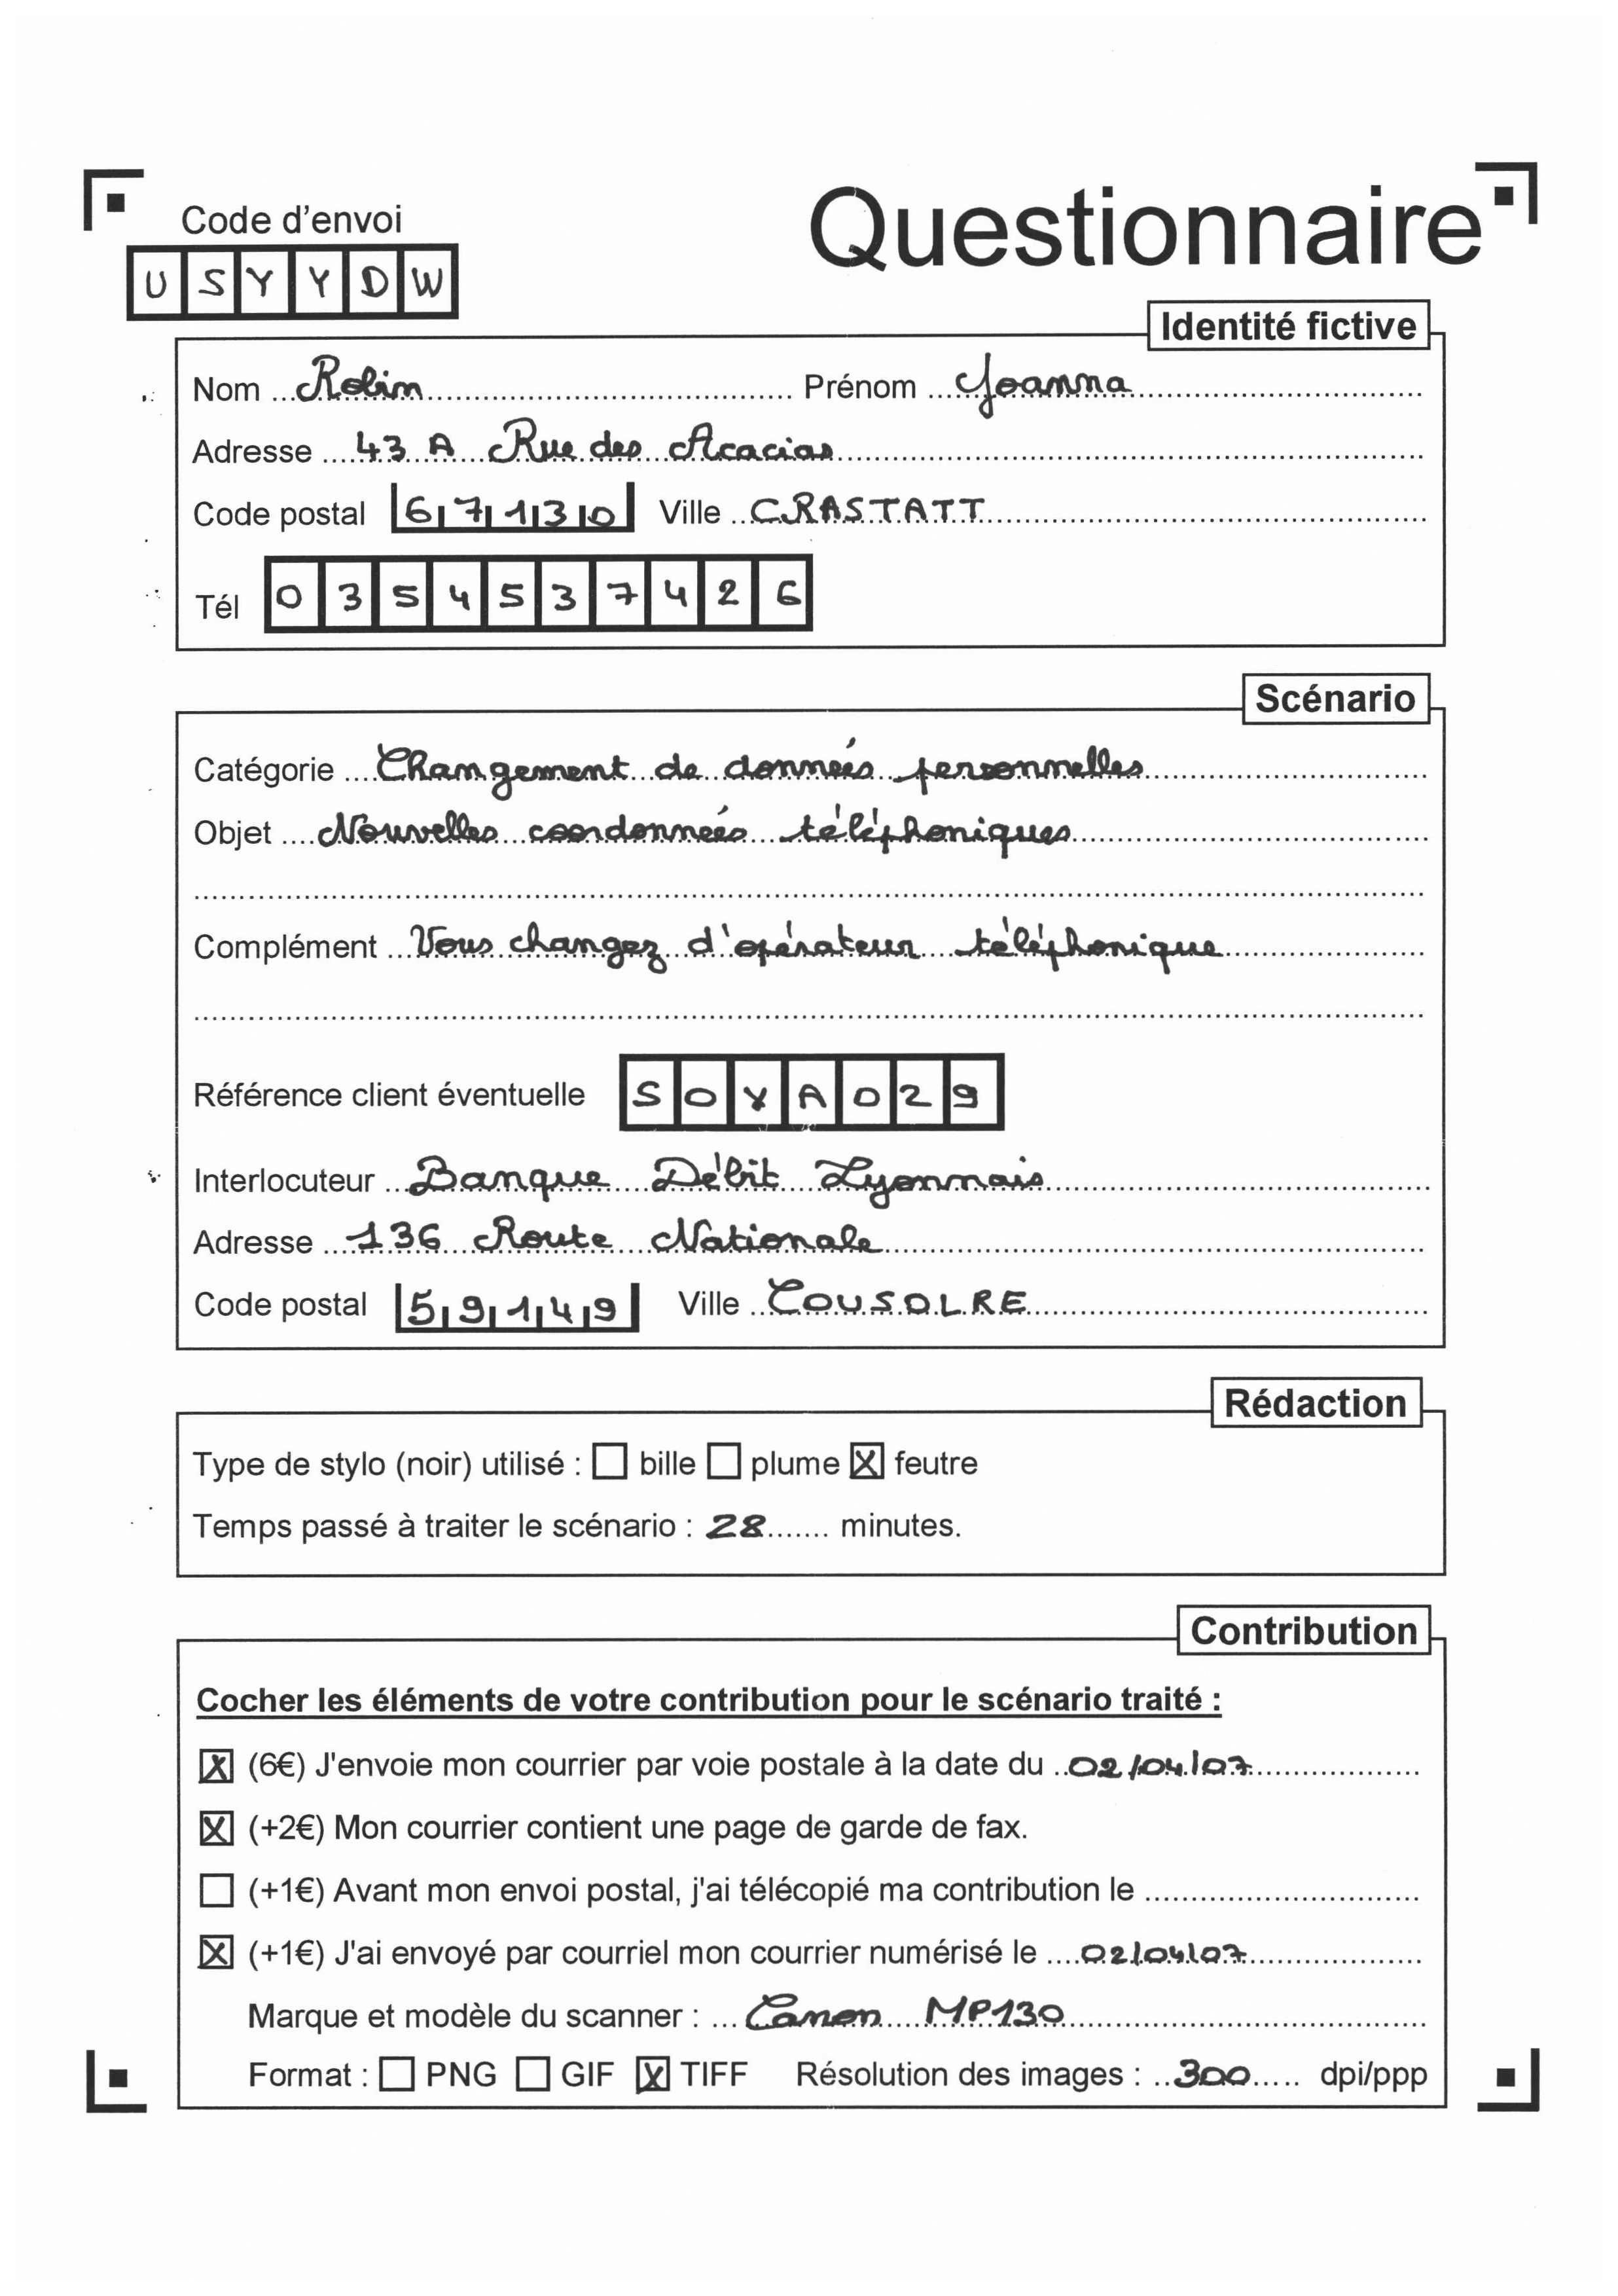 Questionnaire
Code d'envoi
USYYDW
Identité fictive
Nom Robin Prénom Joanna
Adresse 43 A Rue des Acacias
Code postal 67130 Ville CRASTATT
Tél 0354537426
Scénario
Catégorie Changement de données personnelles
Objet Nouvelles coordonnées téléphoniques
Complément Vous changez d'opérateur téléphonique
Référence client éventuelle SOYA029
Interlocuteur Banque Débit Lyonnais
Adresse 136 Route Nationale
Code postal 59149 Ville COUSOLRE
Rédaction
Type de stylo (noir) utilisé : ☐ bille ☐ plume ☒ feutre
Temps passé à traiter le scénario : 28 minutes.
Contribution
Cocher les éléments de votre contribution pour le scénario traité :
☒ (6€) J'envoie mon courrier par voie postale à la date du 02/04/07
☒ (+2€) Mon courrier contient une page de garde de fax.
☐ (+1€) Avant mon envoi postal, j'ai télécopié ma contribution le
☒ (+1€) J'ai envoyé par courriel mon courrier numérisé le 02/04/07
Marque et modèle du scanner : Canon MP130
Format : ☐ PNG ☐ GIF ☒ TIFF Résolution des images : 300 dpi/ppp